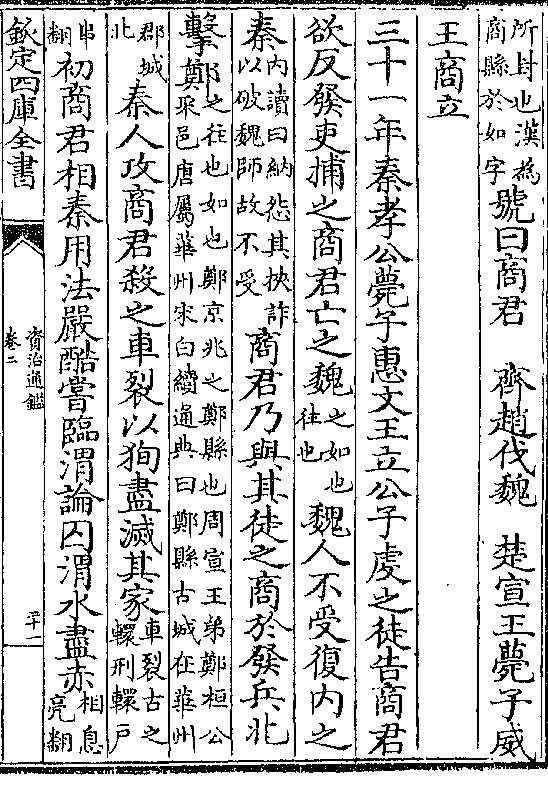 所封也漢為商縣於如字號曰商君　齊趙伐魏　楚宣王薨子威
王商立
三十一年秦孝公薨子惠文王立公子虔之徒告商君
欲反發吏捕之商君亡之魏之如也往也魏人不受復内之
秦内讀曰納怨其挾詐以破魏師故不受商君乃與其徒之商於發兵北
擊鄭之往也如也鄭京兆之鄭縣也周宣王弟鄭桓公采邑唐屬華州宋白續通典曰鄭縣古城在華州
郡城北秦人攻商君殺之車裂以狥盡滅其家車裂古之轘刑轘戸
串翻初商君相秦用法嚴酷嘗臨渭論囚渭水盡赤相息亮翻
欽定四庫全書
資治通鑑
卷二
二十一